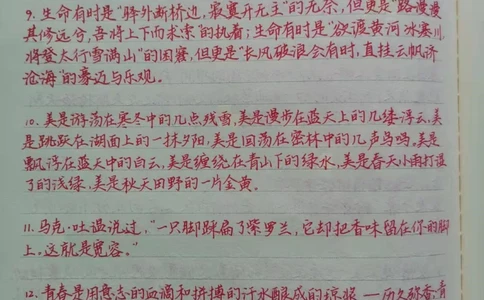 9. 生命有时是"驿外断桥边,寂寞开无主"的无奈,但更是"路漫漫
其修远兮,吾将上下而求索"的执着;生命有时是"欲渡黄河冰塞川,
将登太行雪满山"的困窘,但更是"长风破浪会有时,直挂云帆济
沧海"的豪迈与乐观。
10. 美是游荡在寒冬中的几点残雪,美是漫步在蓝天上的几缕浮云,美
是跳跃在湖面上的一抹夕阳,美是回荡在密林中的几声鸟鸣。美是
飘浮在蓝天中的白云,美是缠绕在青山下的绿水,美是春天小雨打湿
了的浅绿,美是秋天田野的一片金黄。
11. 马克·吐温说过,"一只脚踩扁了紫罗兰,它却把香味留在你的脚
上。这就是宽容。"
12. 青春是用意志的血滴和拼搏的汗水酿成的琼浆——历久弥香;青